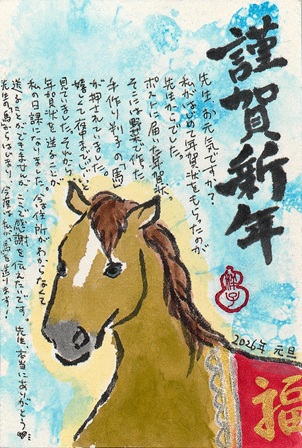 謹賀新年
先生、お元気ですか？
私がはじめて年賀状をもらったのが
先生からでした。
ポストに届いた年賀状。
そこには野菜で作った
手作りハンコの馬
が押されていました。
嬉しくて何度も
見ていました。それから、
年賀状を送ることが
私の日課になりました。今は住所がわからなくて
送ることができませんが、ここで感謝を伝えたいです。先生、本当にありがとう
先生の馬からはじまり、今度は私が馬を送ります！
2026年 元旦
福